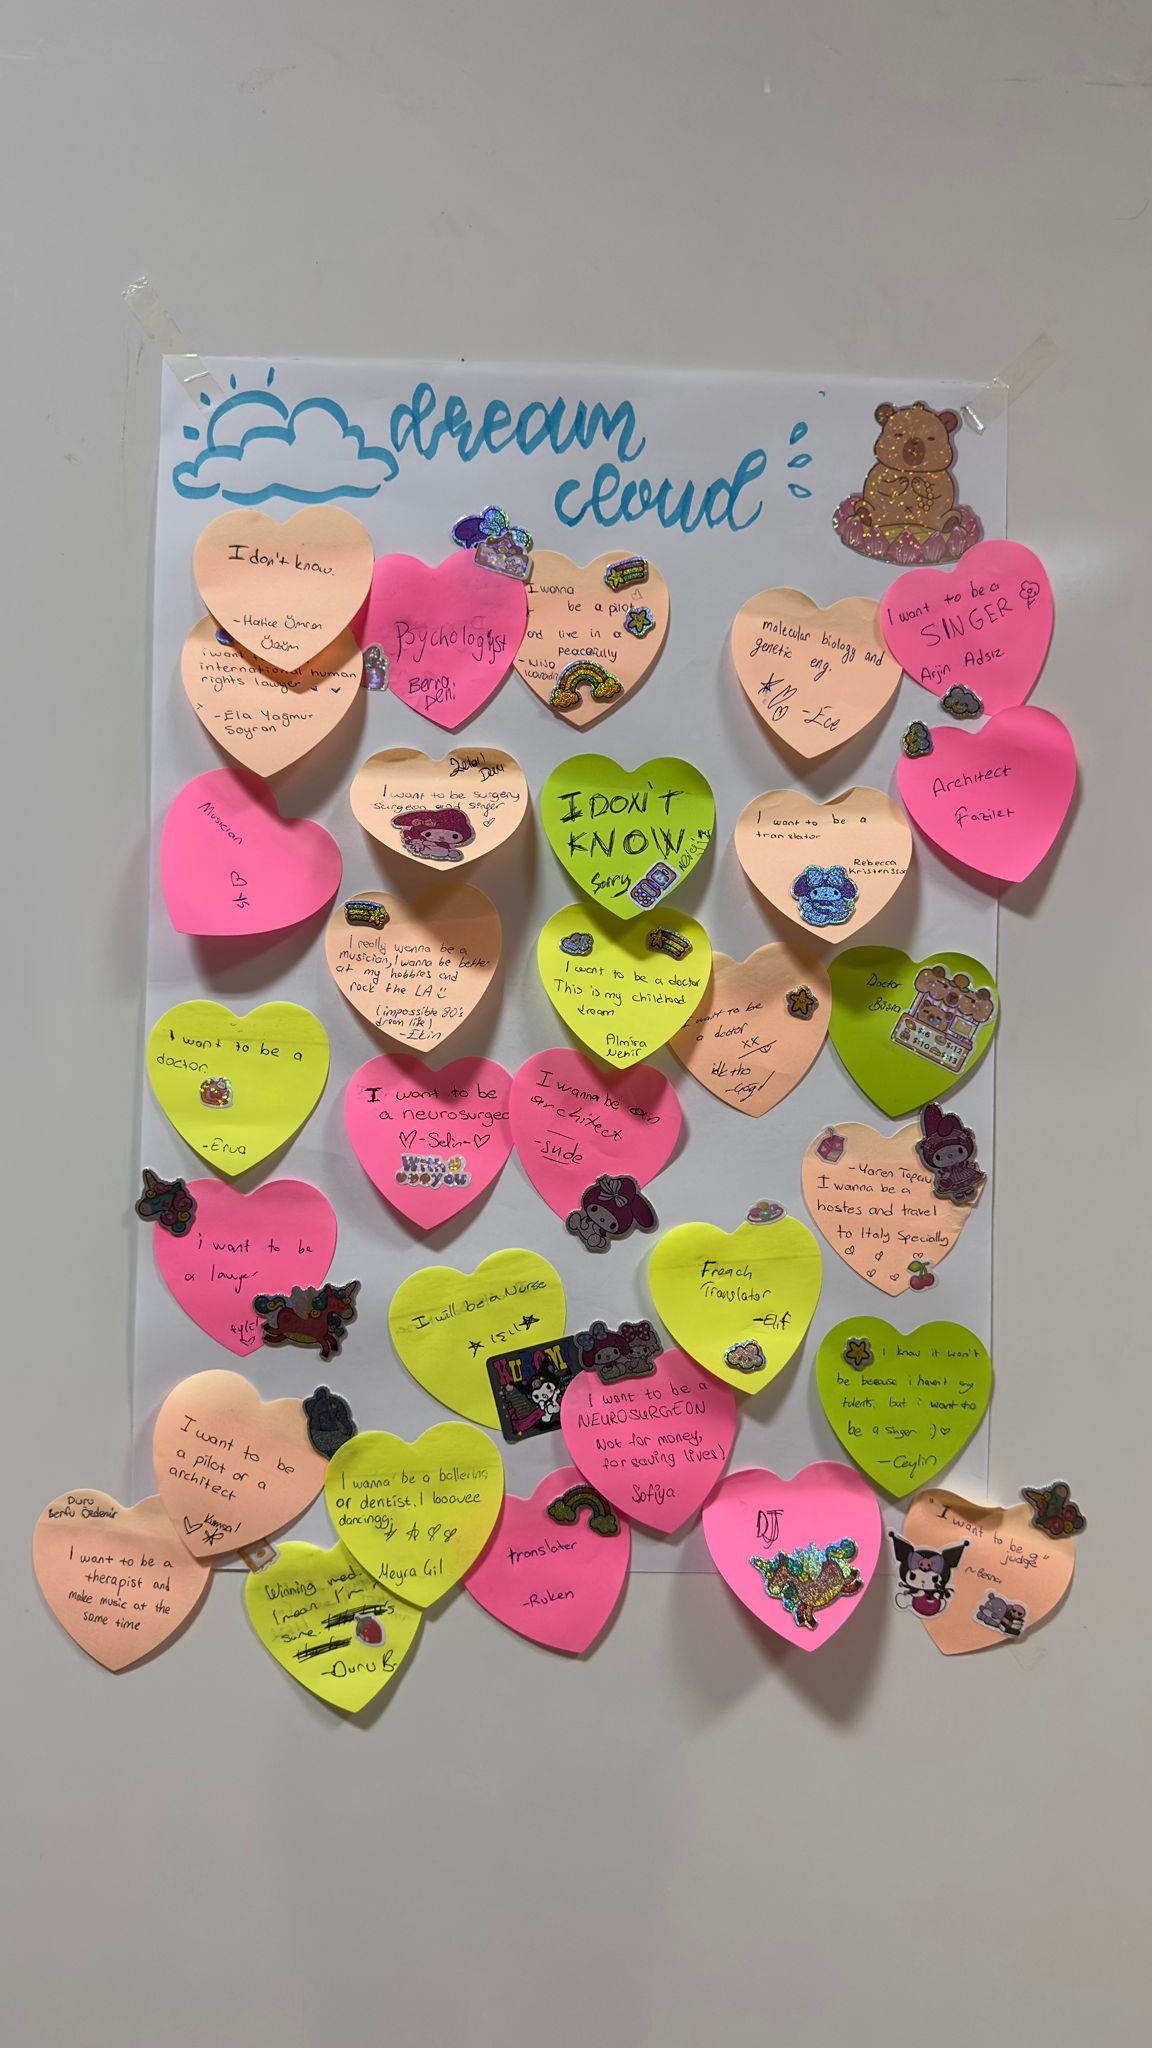 dream
cloud
I don't know.
-Hatice Ümran
i want
international human
rights lawyer
-Ela Yagmur
Soyran
Psychologyst
Berra
I wanna
be a pilot
and live in a
peacefully
molecular biology and
genetic eng.
-Ece
I want to be a
SINGER
Arjin Adsız
Architect
Fazilet
Musician
I want to be surgery
surgeon and singer
I DON'T
KNOW
Sorry
I want to be a
translator
Rebecca
I really wanna be a
musician, I wanna be better
at my hobbies and
rock the LA
(impossible 80's
dream life)
-Ekin
I want to be a doctor
This is my childhood
dream
Almira
I want to be
a doctor
xx
idk tho
Doctor
Büşra
$:8
$:10
$:12
$:13
I want to be a
doctor.
-Erva
I want to be
a neurosurgeo
-Selin-
With
you
I wanna be an
architect
-Sude
-Yaren Topçu
I wanna be a
hostes and travel
to Italy Specially
i want to be
a lawyer
I will be a Nurse
KUROMI
French
Translator
-Elif
I want to be a
NEUROSURGEON
Not for money,
for saving lives!
Sofiya
I know it won't
be because i haven't any
talents. but i want to
be a singer :)
-Ceylin
I want to be
a pilot or a
architect
Kumsal
I wanna be a ballerina
or dentist. I loovee
dancingg
Meyra Gil
Duru
I want to be a
therapist and
make music at the
same time
Winning med
I mean I'm
sure.
-Duru B.
translater
-Ruken
DJ
"I want to be a
judge"